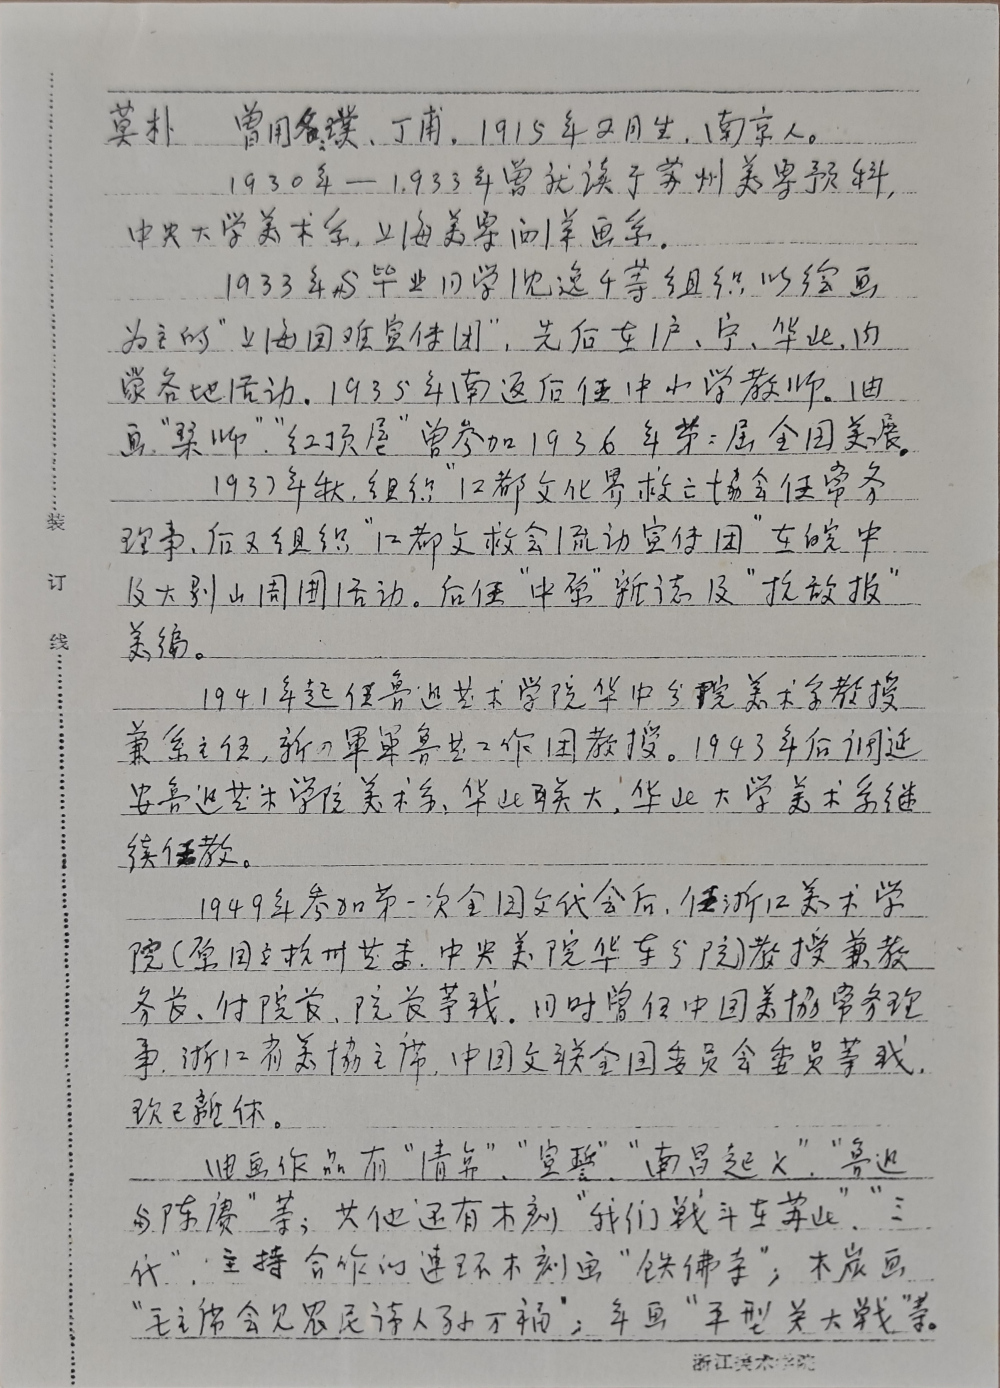 莫朴　曾用名璞、丁甫。1915年2月生，南京人。
1930年—1933年曾就读于苏州美専预科，
中央大学美术系，上海美専西洋画系。
1933年与毕业同学沈逸千等组织以绘画
为主的"上海国难宣传团"，先后在沪、宁、华北、内
蒙各地活动。1935年南返后任中小学教师。油
画"琴师"、"红顶屋"曾参加1936年第二届全国美展。
1937年秋，组织"江都文化界救亡协会任常务
理事、后又组织"江都文救会流动宣传团"在皖中
及大别山周围活动。后任"中原"杂志及"抗敌报"
美编。
1941年起任鲁迅艺术学院华中分院美术系教授
兼系主任，新四軍軍鲁艺工作团教授。1943年后调延
安鲁迅艺术学院美术系、华北联大、华北大学美术系继
续任教。
1949年参加第一次全国文代会后，任浙江美术学
院(原国立杭州艺专、中央美院华东分院)教授兼教
务长、付院长、院长等职。同时曾任中国美協常务理
事、浙江省美協主席，中国文联全国委员会委员等职，
现已離休。
油画作品有"清算"、"宣誓"、"南昌起义"、"鲁迅
与陈赓"等；其他还有木刻"我们戰斗在苏北"、"三
代"，主持合作的連环木刻画"铁佛寺"；木炭画
"毛主席会见农民诗人孙万福"；年画"平型关大戰"等。
装
订
线
浙江美术学院